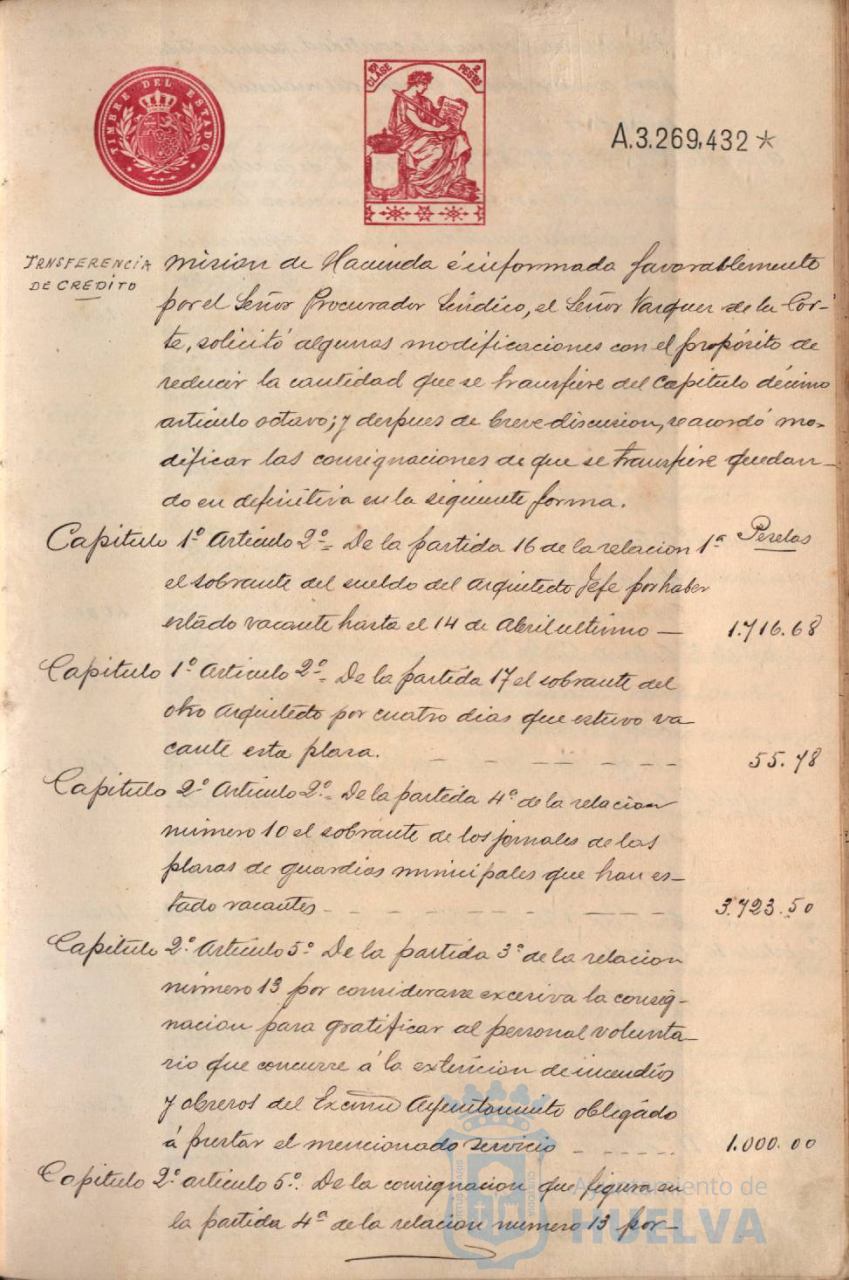 TIMBRE DEL ESTADO
CLASE
2 PESETAS
A.3.269,432*
TRNSFERENCIA
DE CRÉDITO
mision de Hacienda é informada favorablemente
por el Señor Procurador Síndico, el Señor Vazquez de la Cor-
te, solicitó algunas modificaciones con el propósito de
reducir la cantidad que se transfiere del Capitulo décimo
artículo octavo; y despues de breve discusion, se acordó mo-
dificar las consignaciones de que se transfiere quedan-
do en definitiva en la siguiente forma.
Pesetas
Capitulo 1º Articulo 2º= De la partida 16 de la relacion 1ª
el sobrante del sueldo del Arquitecto Jefe por haber
estado vacante hasta el 14 de Abril ultimo — 1.716.68
Capitulo 1º Articulo 2º= De la partida 17 el sobrante del
otro Arquitecto por cuatro dias que estuvo va
cante esta plaza. - - - - - 55.78
Capitulo 2º Articulo 2º= De la partida 4ª de la relacion
número 10 el sobrante de los jornales de las
plazas de guardias municipales que han es-
tado vacantes - - - - - 3.723.50
Capitulo 2º Articulo 5º De la partida 3ª de la relacion
número 13 por considerarse excesiva la consig-
nacion para gratificar al personal volunta-
rio que concurre á la extincion de incendios
y obreros del Excmo Ayuntamiento obligado
á prestar el mencionado servicio - - - - - 1.000.00
Capitulo 2º articulo 5º. De la consignacion que figura en
la partida 4ª de la relacion numero 13 por-
Ayuntamiento de
HUELVA